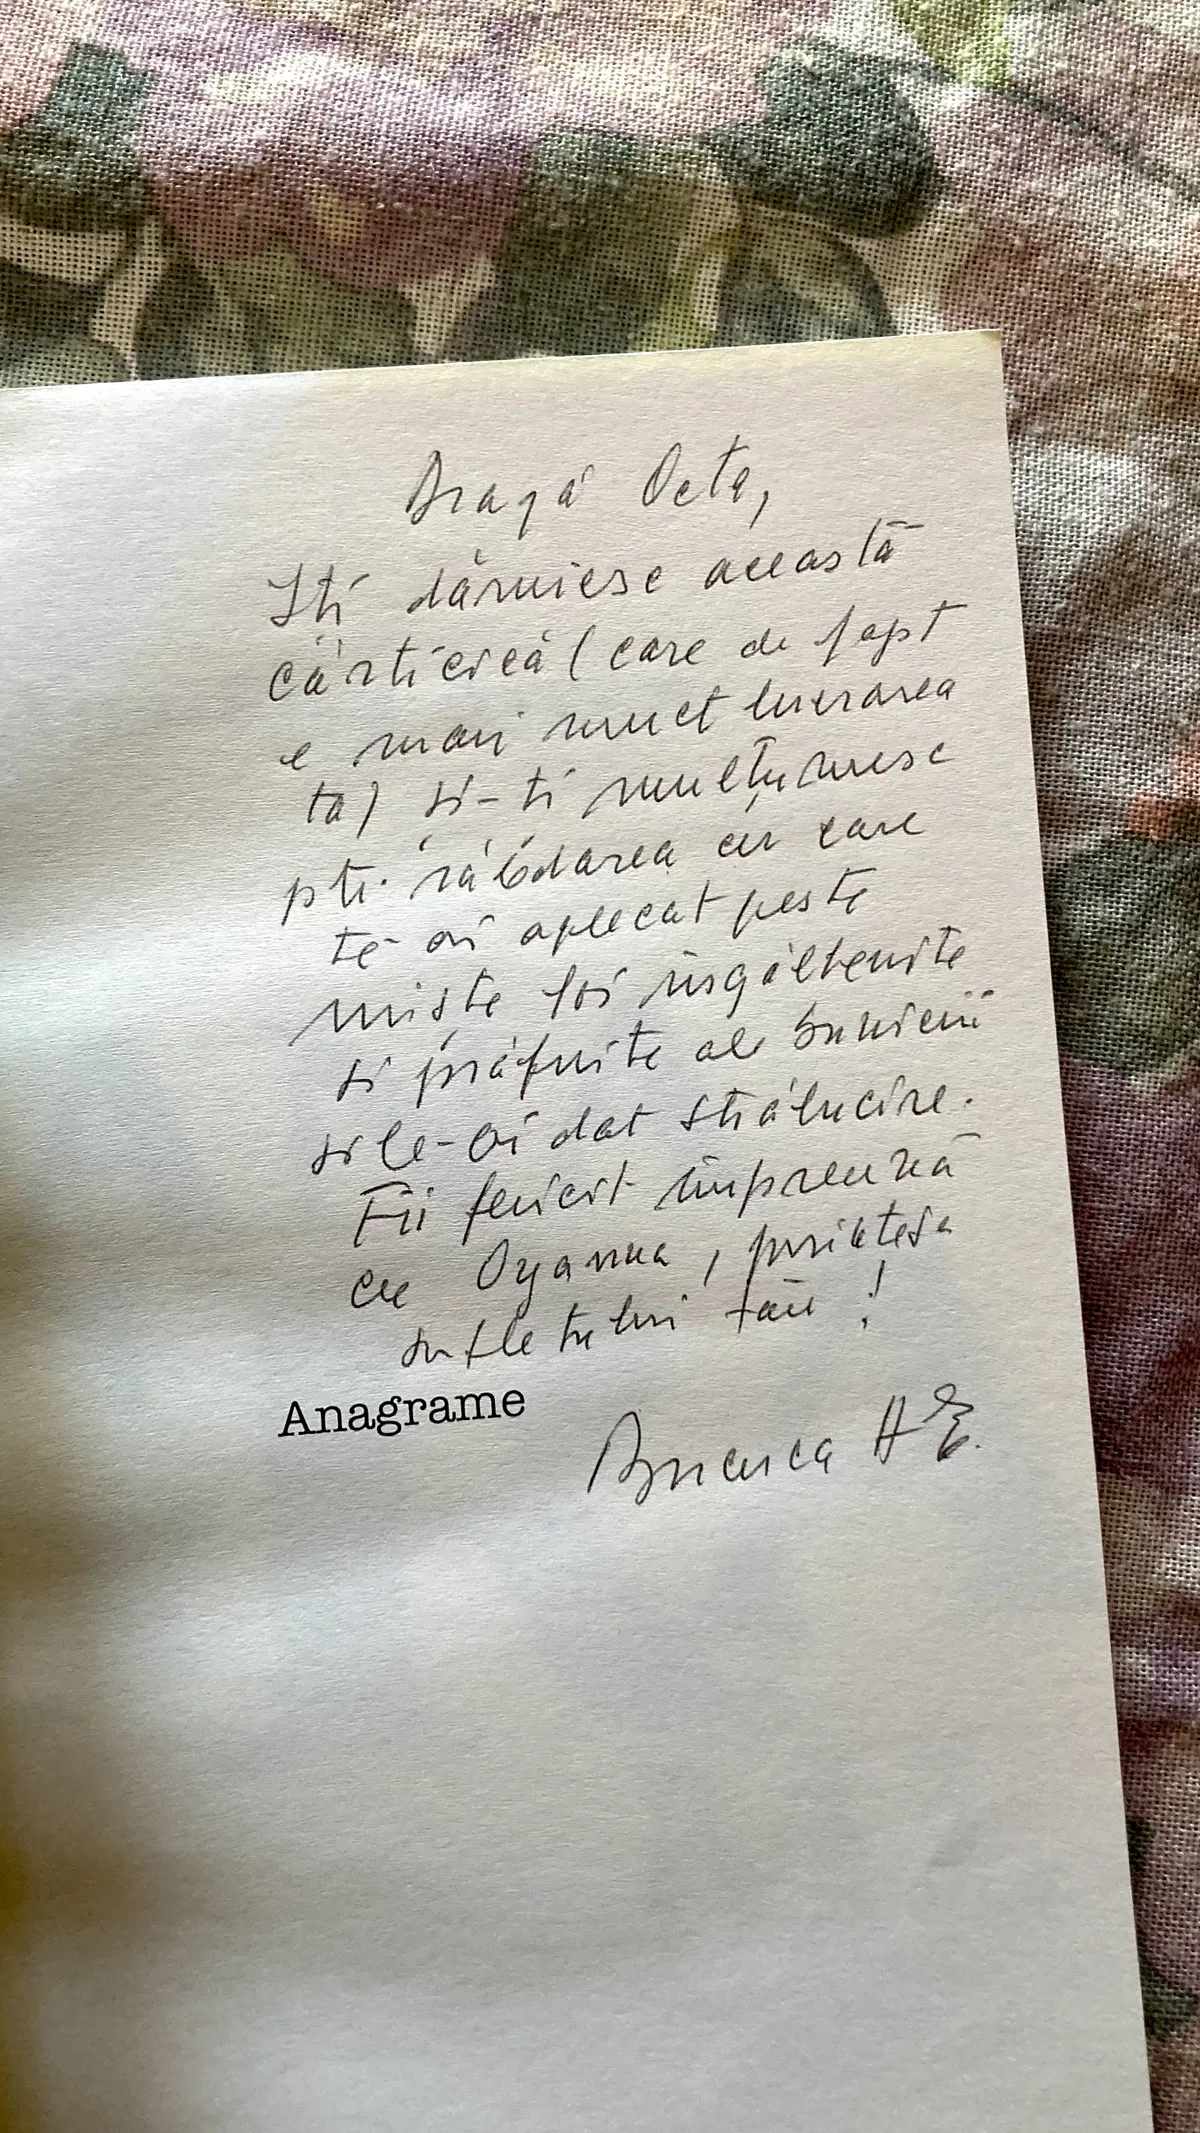 Dragă Octa,
Îți dăruiesc această
cărticică (care de fapt
e mai mult lucrarea
ta) și-ți mulțumesc
ptr. răbdarea cu care
te-ai aplecat peste
niște foi îngălbenite
și prăfuite ale bunicii
și le-ai dat strălucire.
Fii fericit împreună
cu Oyanna, prietesa
sufletului tău!
Anagrame
Bunica